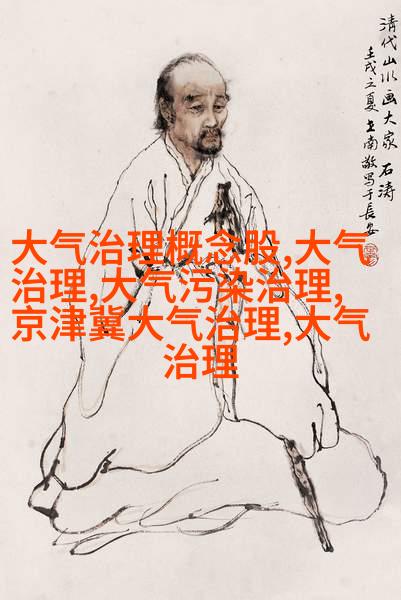 清代山水画大家 石涛
壬戌之夏 王南敬写于長安
大气治理概念股,大气
治理,大气污染治理,
京津冀大气治理,大气
治理